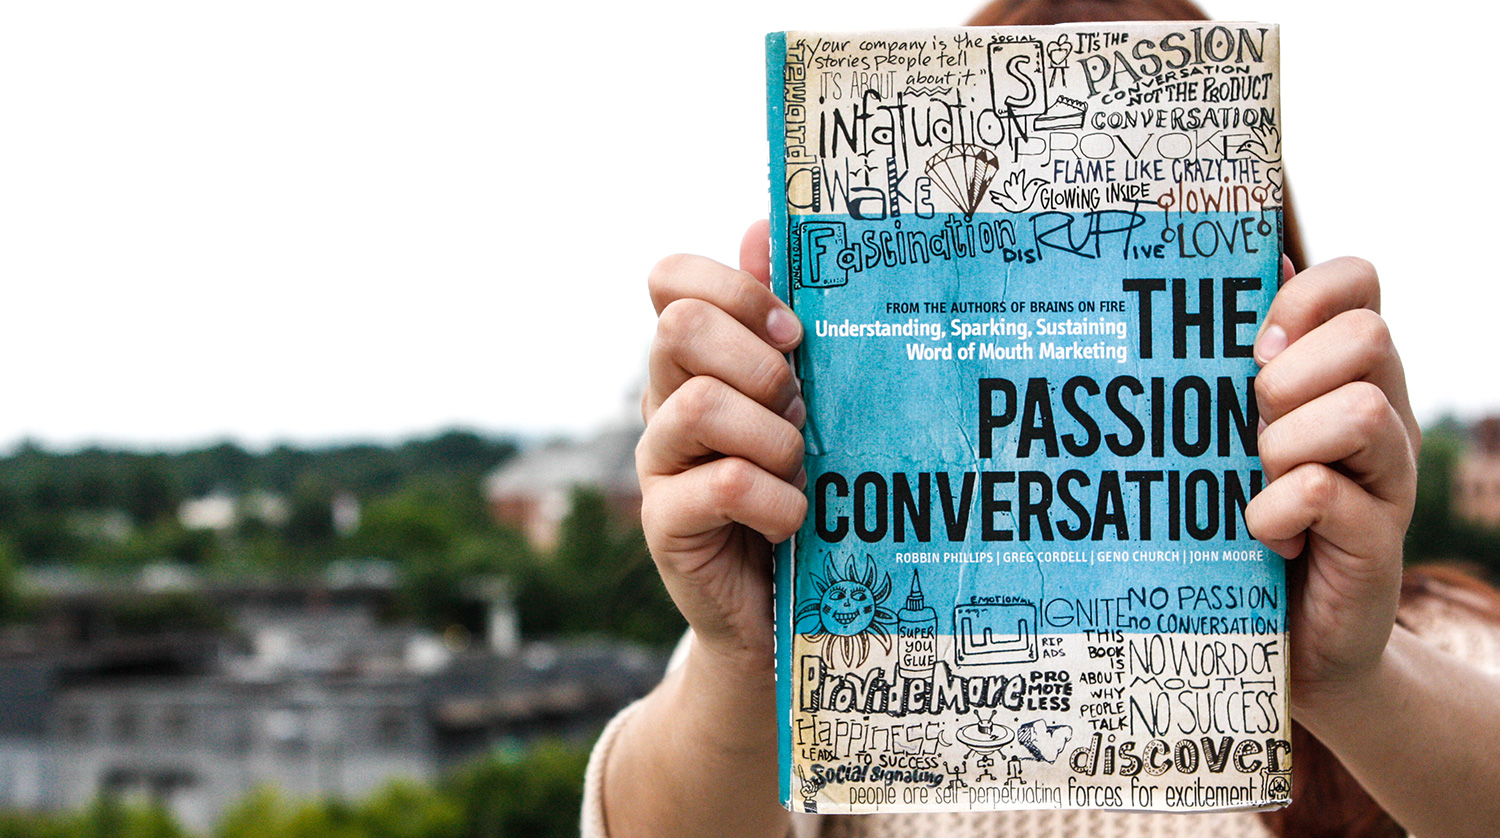 "your company is the
stories people tell
about it."
SOCIAL
S
IT'S THE
PASSION
CONVERSATION
NOT THE PRODUCT
CONVERSATION
IT'S ABOUT
infatuation
PROVOKE
awake
FLAME LIKE CRAZY. THE
GLOWING INSIDE
glowing
LOVE
FUNCTIONAL
Fascination
DISRUPTIVE
FROM THE AUTHORS OF BRAINS ON FIRE
Understanding, Sparking, Sustaining
Word of Mouth Marketing
THE
PASSION
CONVERSATION
ROBBIN PHILLIPS | GREG CORDELL | GENO CHURCH | JOHN MOORE
SUPER
YOU
GLUE
EMOTIONAL
E
IGNITE
RIP
ADS
NO PASSION
no CONVERSATION
THIS
BOOK
IS
ABOUT
WHY
PEOPLE
TALK
NO WORD OF
MOUTH
NO SUCCESS
Provide More
PRO
MOTE
LESS
HAPPINESS
LEADS TO SUCCESS
Social Signaling
discover
people are self-perpetuating forces for excitement